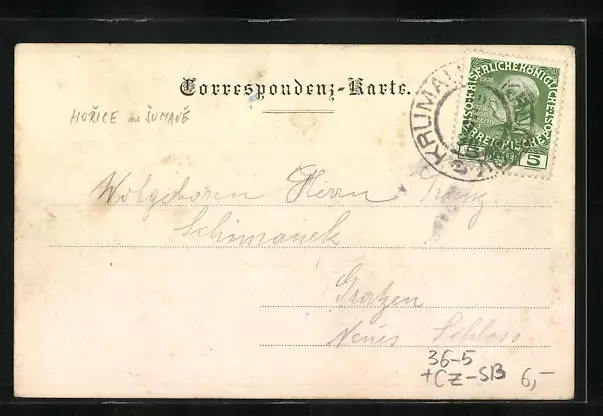 Correspondenz-Karte.
HOŘICE na ŠUMAVĚ
KRUMAU
KAISERLICHE KÖNIGLICHE
ÖSTERREICHISCHE
5 5
Wolgeboren Herrn Franz
Schimanek
Gratzen
Neues Schloss
36-5
+CZ-SB 6,-